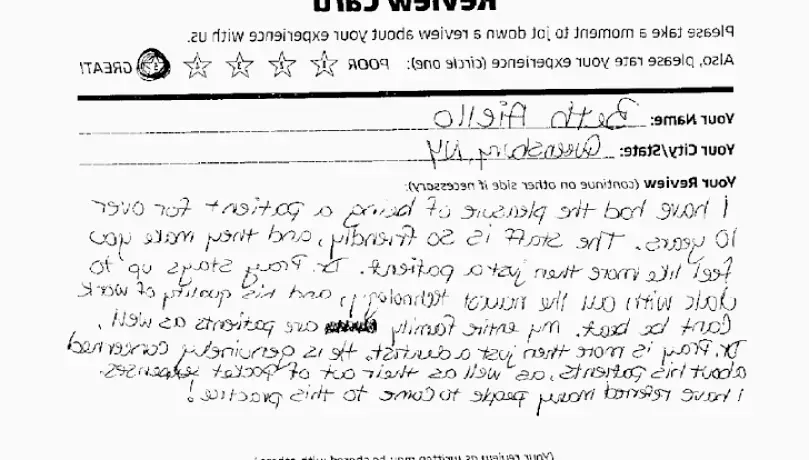 Review Card
Please take a moment to jot down a review about your experience with us.
Also, please rate your experience (circle one): POOR GREAT!
Your Name: Beth Aiello
Your City/State: Queensbury, NY
Your Review (continue on other side if necessary):
I have had the pleasure of being a patient for over
10 years. The staff is so friendly, and they make you
feel like more then just a patient. Dr. Pray stays up to
date with all the newest technology, and his quality of work
Cant be beat. my entire family are patients as well.
Dr. Pray is more then just a dentist. He is genuinely concerned
about his patients, as well as their out of pocket expenses.
I have refered many people to come to this practice!
(Your review as written may be shared with others)